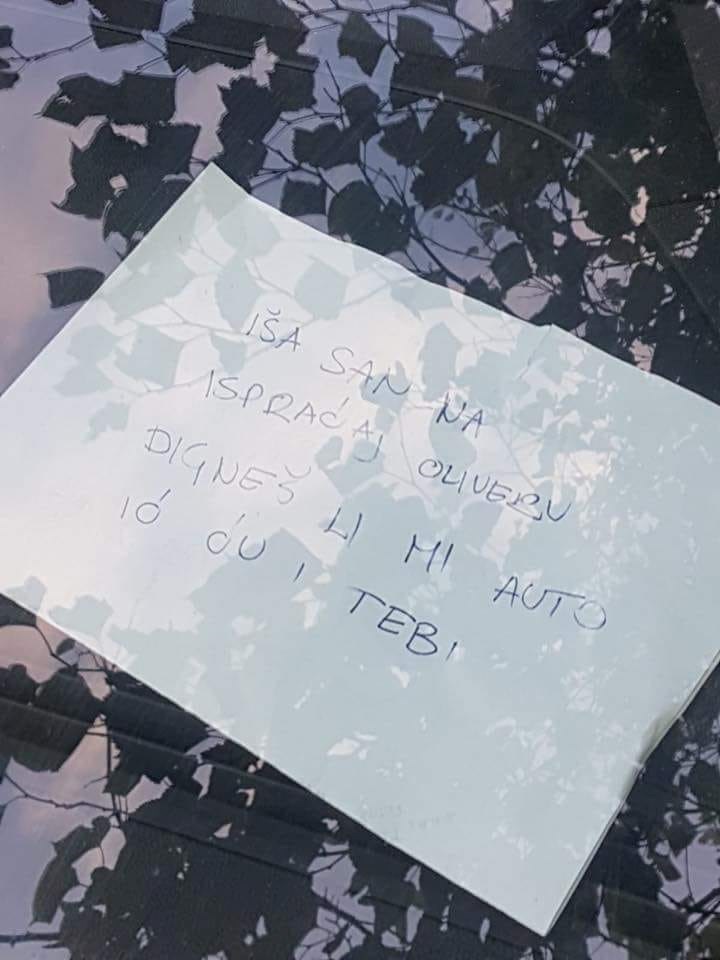 IŠA SAN NA
ISPRAĆAJ OLIVERU
DIGNEŠ LI MI AUTO
IĆ ĆU I TEBI